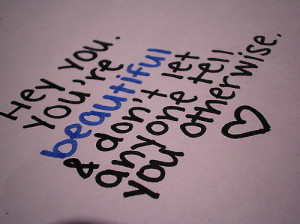 Hey you.
you're
beautiful
& don't let
anyone tell
you otherwise.